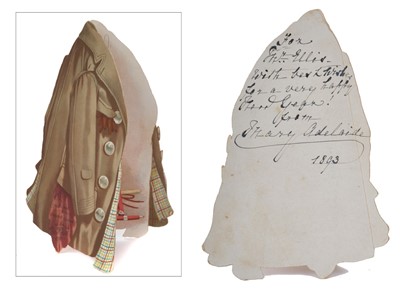 For
Mr. Ellis.
With best Wishes
for a very happy
New Year!
from
Mary Adelaide
1893